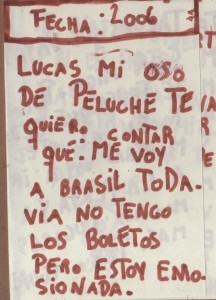 FECHA: 2006
LUCAS MI OSO
DE PELUCHE TE
QUIERO CONTAR
QUE: ME VOY
A BRASIL TODA-
VIA NO TENGO
LOS BOLETOS
PERO ESTOY EMO-
SIONADA.